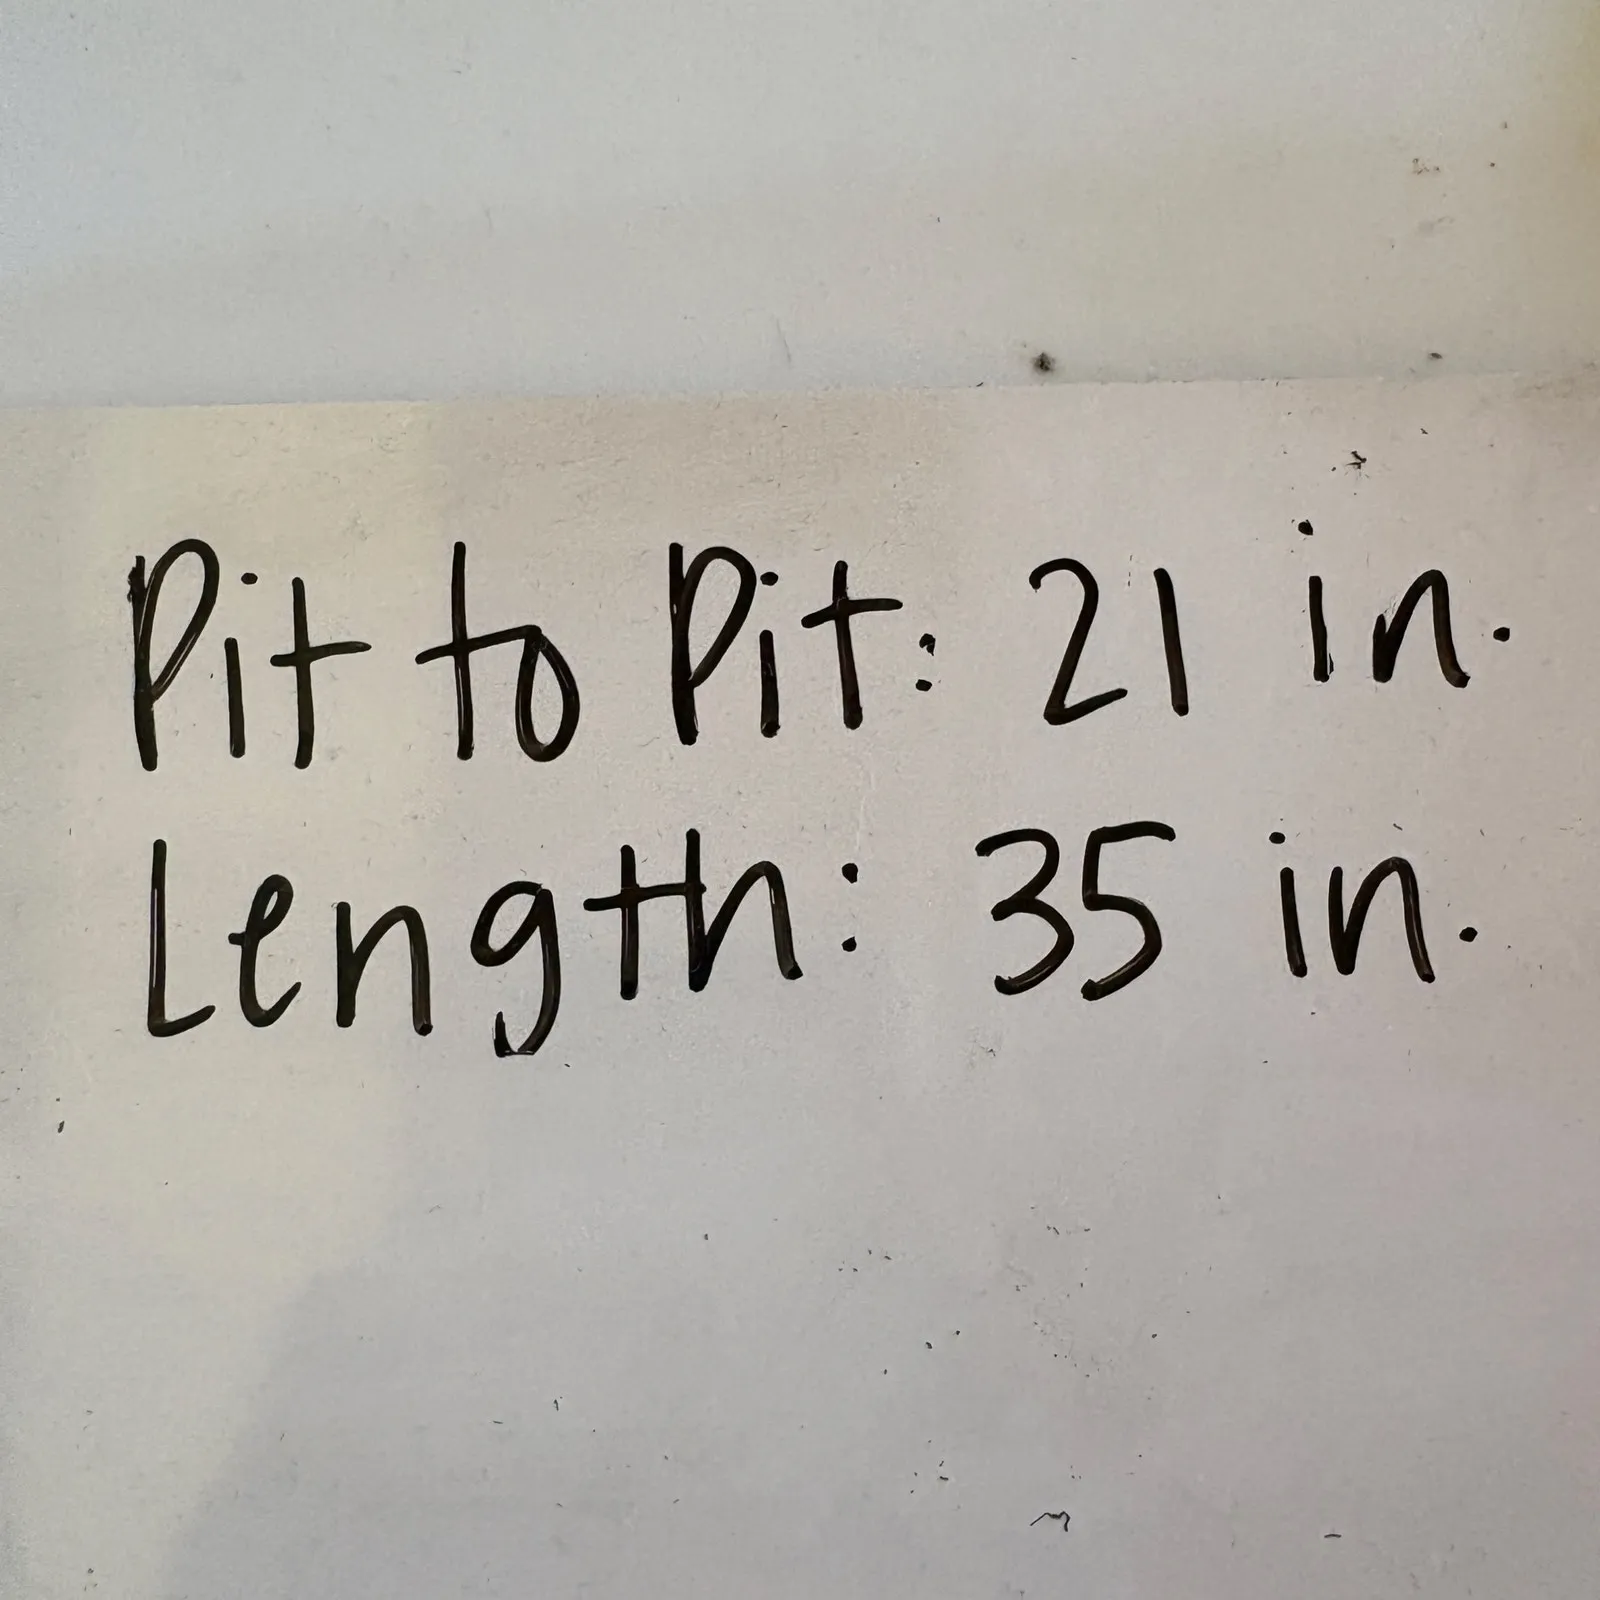 Pit to Pit: 21 in.
Length: 35 in.